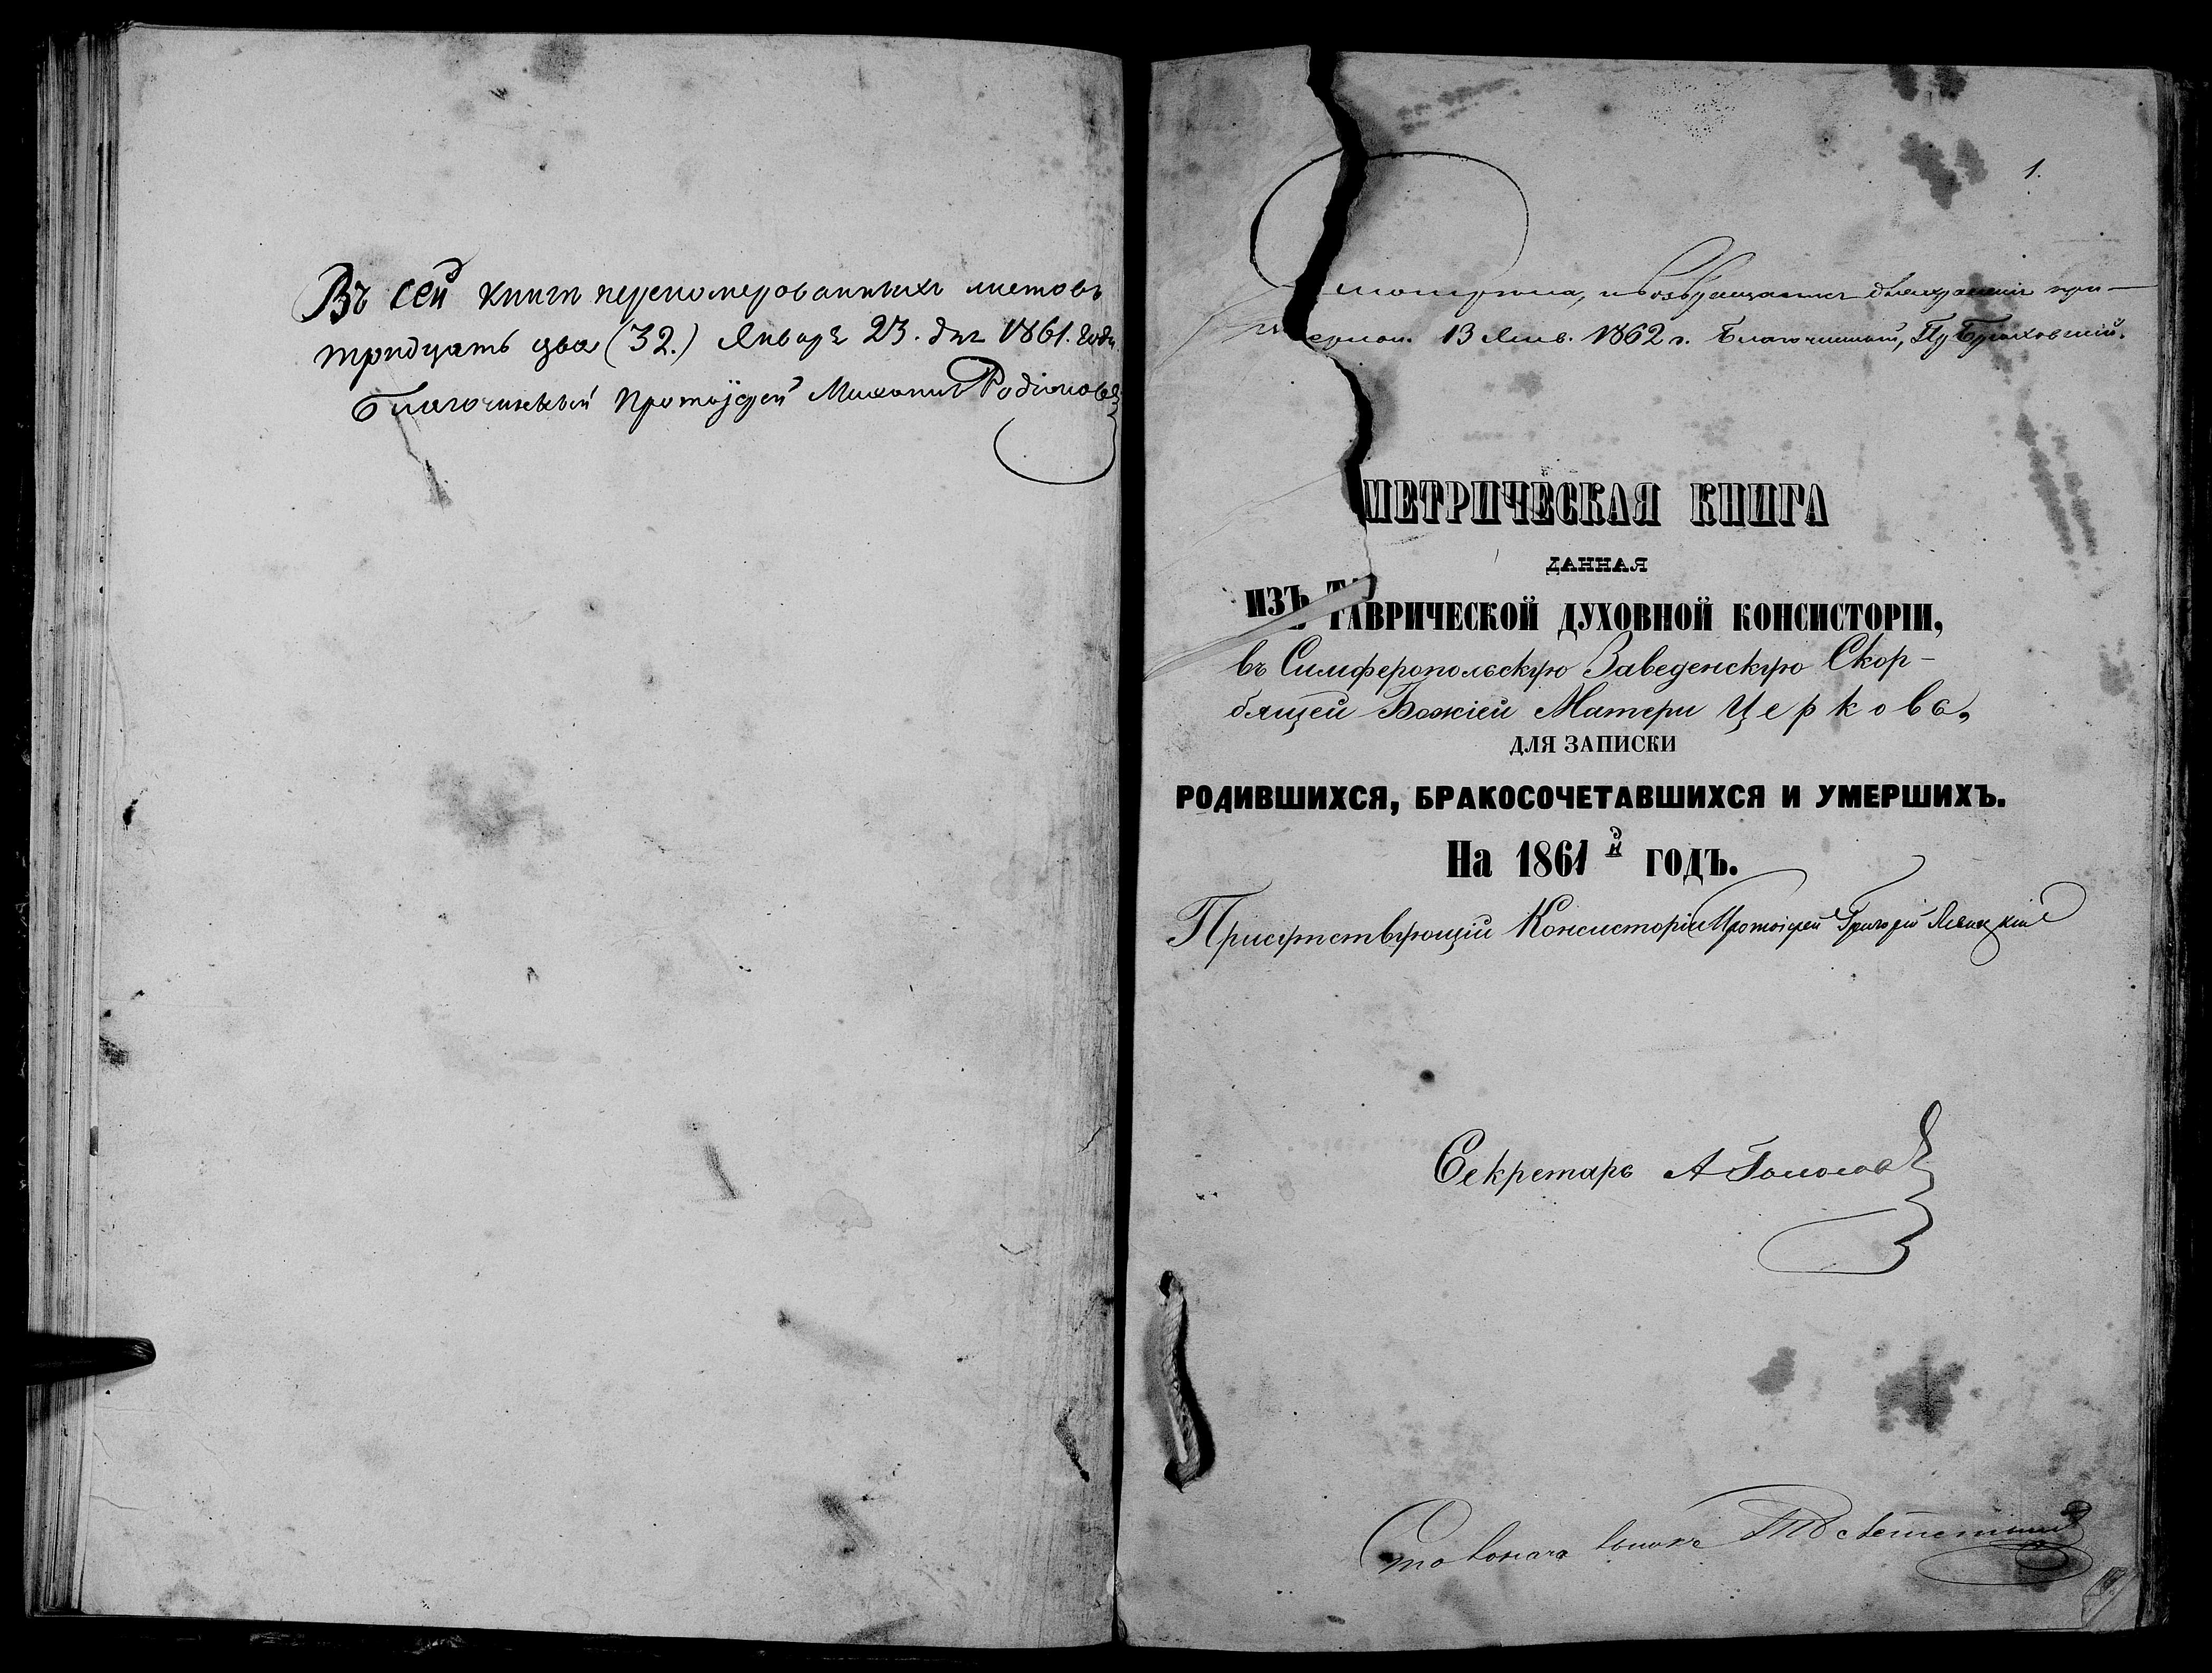 Въ сей книги переномерованныхъ листовъ
тридцать два (32.) Января 23. дня 1861. года
Благочинный Протоіерей Михаилъ Родіоновъ
1.
смотрена, и возвращается для храненія при
церкви. 13 Янв. 1862 г. Благочинный,
МЕТРИЧЕСКАЯ КНИГА
ДАННАЯ
ИЗЪ ТАВРИЧЕСКОЙ ДУХОВНОЙ КОНСИСТОРІИ,
въ Симферопольскую Заведенскую Скор-
бящей Божіей Матери Церковь,
ДЛЯ ЗАПИСКИ
РОДИВШИХСЯ, БРАКОСОЧЕТАВШИХСЯ И УМЕРШИХЪ.
На 1861й ГОДЪ.
Присутствующій Консисторіи Протоіерей Григорій
Секретарь А
Столоначальникъ